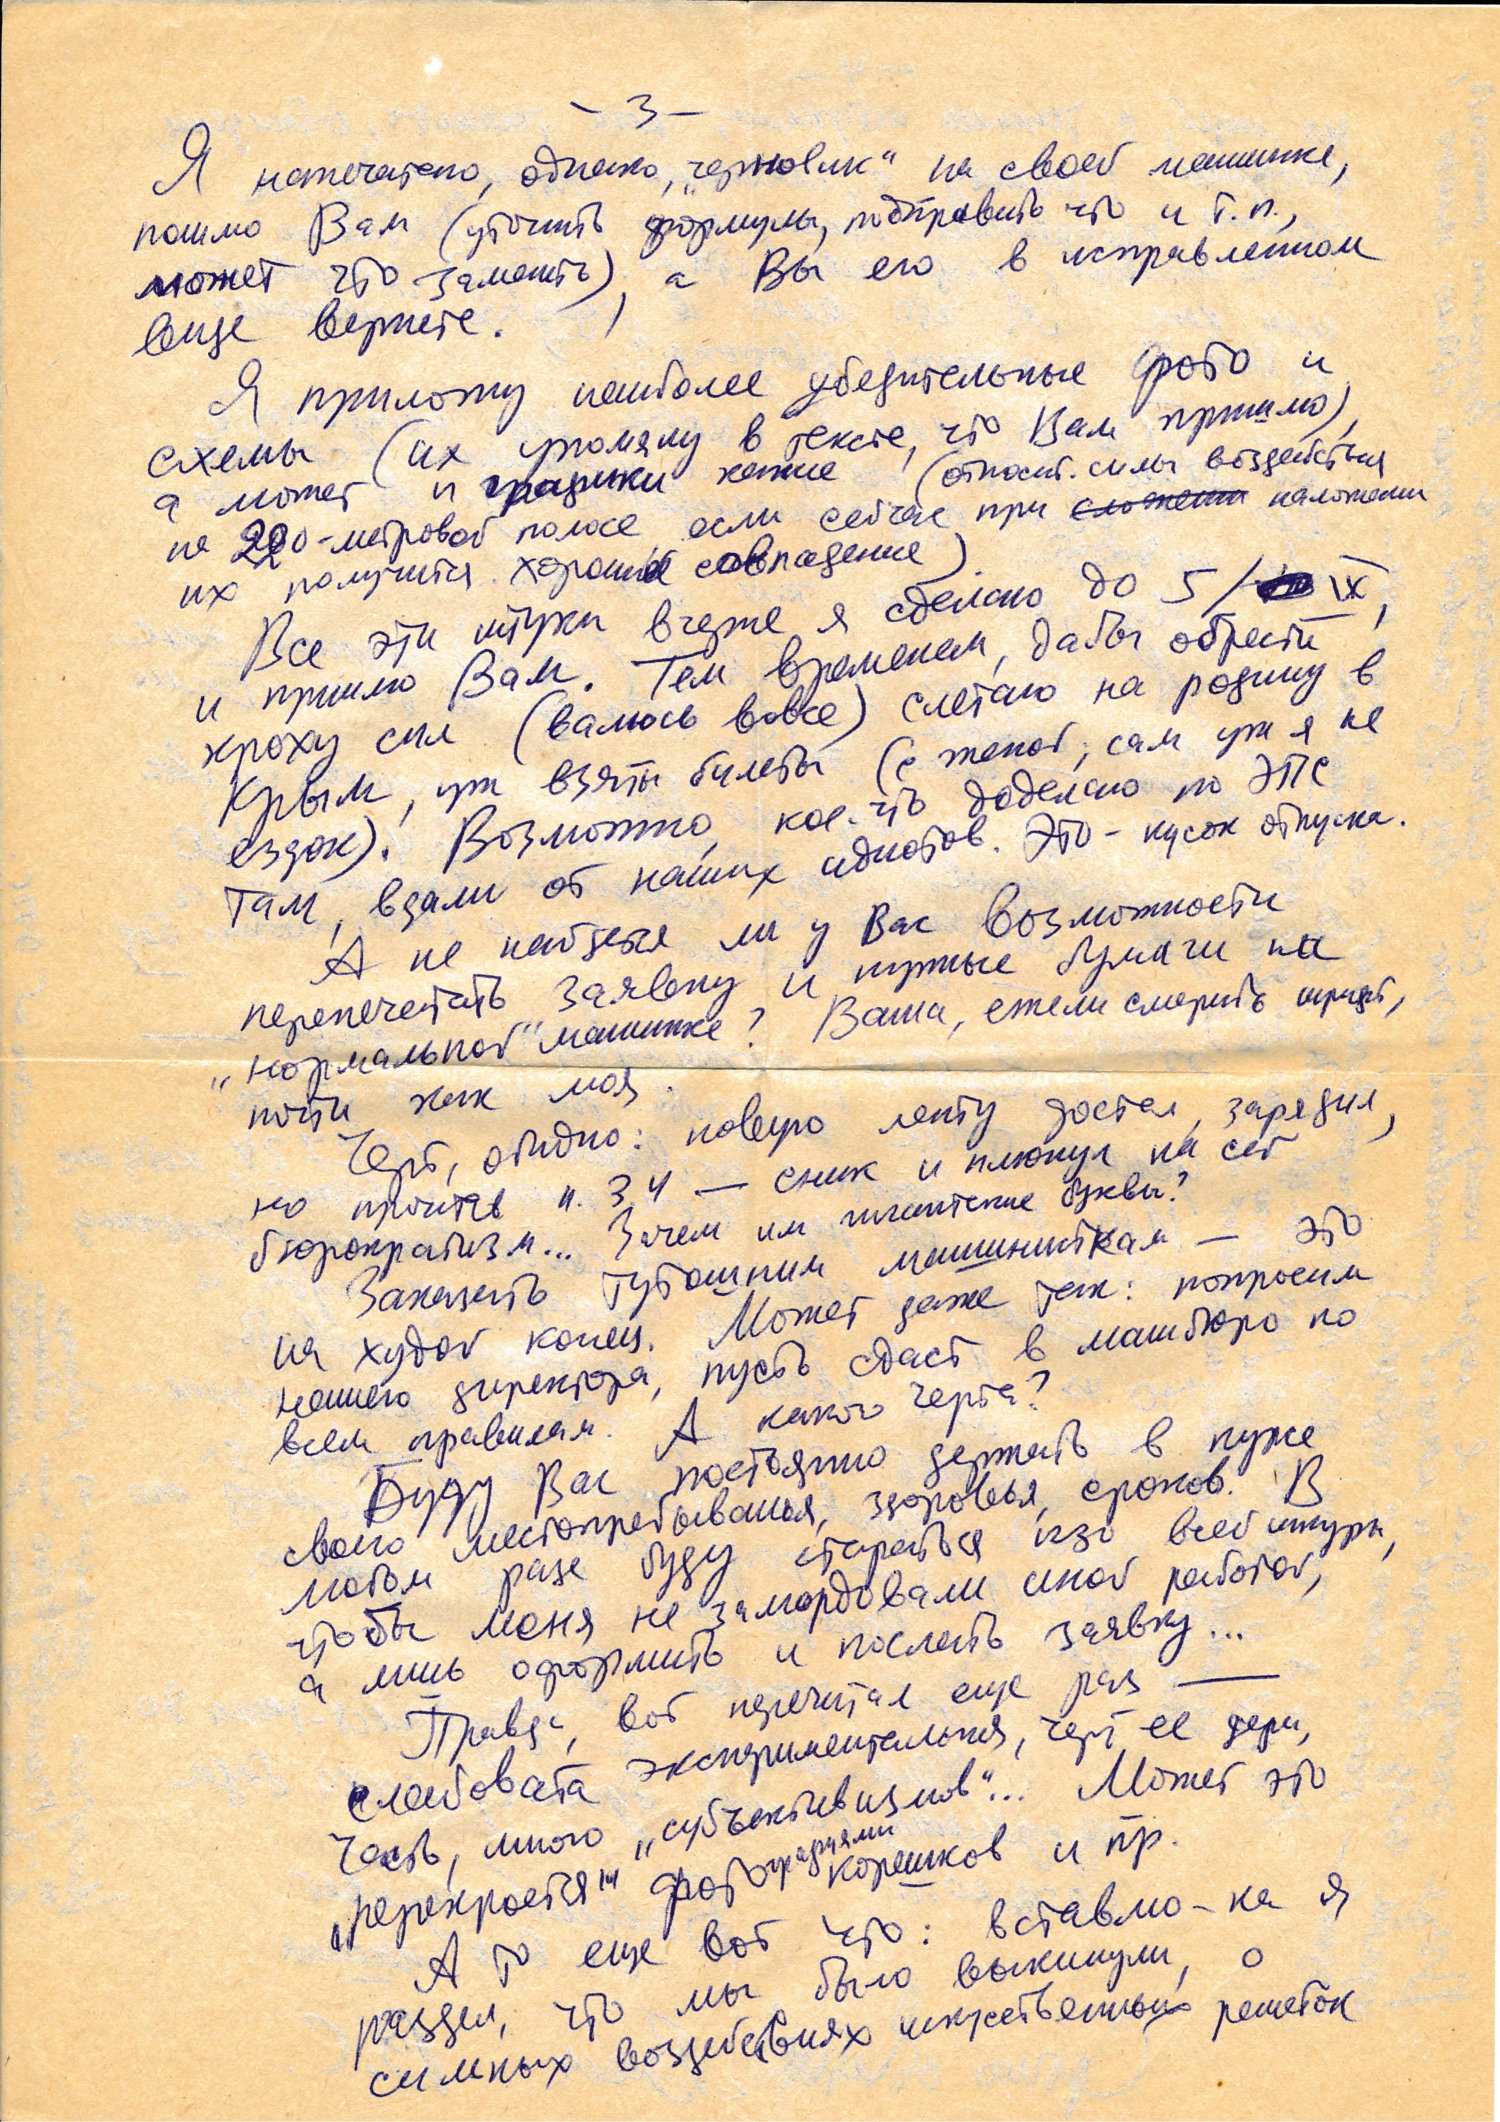 - 3 -
Я напечатаю, однако, „черновик“ на своей машинке,
пошлю Вам (уточнить формулы, подправить что и т.п.,
может что заменить), а Вы его в исправленном
виде вернете.
Я приложу наиболее убедительные фото и
схемы (их упомяну в тексте, что Вам пришлю),
а может и графики какие (относит. силы воздействия
на 200-метровой полосе если сейчас при сложении наложении
их получится хорошее совпадение)
Все эти штуки вчерне я сделаю до 5/IX,
и пришлю Вам. Тем временем, дабы обрести
кроху сил (валюсь вовсе) слетаю на родину в
Крым, уж взяты билеты (с женой; сам уж я не
ездок). Возможно, кое-что доделаю по ЭПС
там, вдали от наших идиотов. Это - кусок отпуска.
А не найдется ли у Вас возможности
перепечатать заявку и нужные бумаги на
„нормальной“ машинке? Ваша, ежели смерить шрифт,
почти как моя.
Черт, обидно: новую ленту достал, зарядил,
но прочтя п. 34 — сник и плюнул на сей
бюрократизм... Зачем им гигантские буквы?
Заказать тутошним машинисткам — это
на худой конец. Может даже так: попросим
нашего директора, пусть сдаст в машбюро по
всем правилам. А какого черта?
Буду Вас постоянно держать в курсе
своего местопребыванья, здоровья, сроков. В
любом разе буду стараться изо всей шкуры,
чтобы меня не замордовали иной работой,
а лишь оформить и послать заявку...
Правда, вот перечитал еще раз —
слабовата экспериментальная, черт ее дери,
часть, много „субъективизмов“... Может это
„перекроется“ фотографиями корешков и пр.
А то еще вот что: вставлю-ка я
раздел, что мы было выкинули, о
сильных воздействиях искусственных решеток